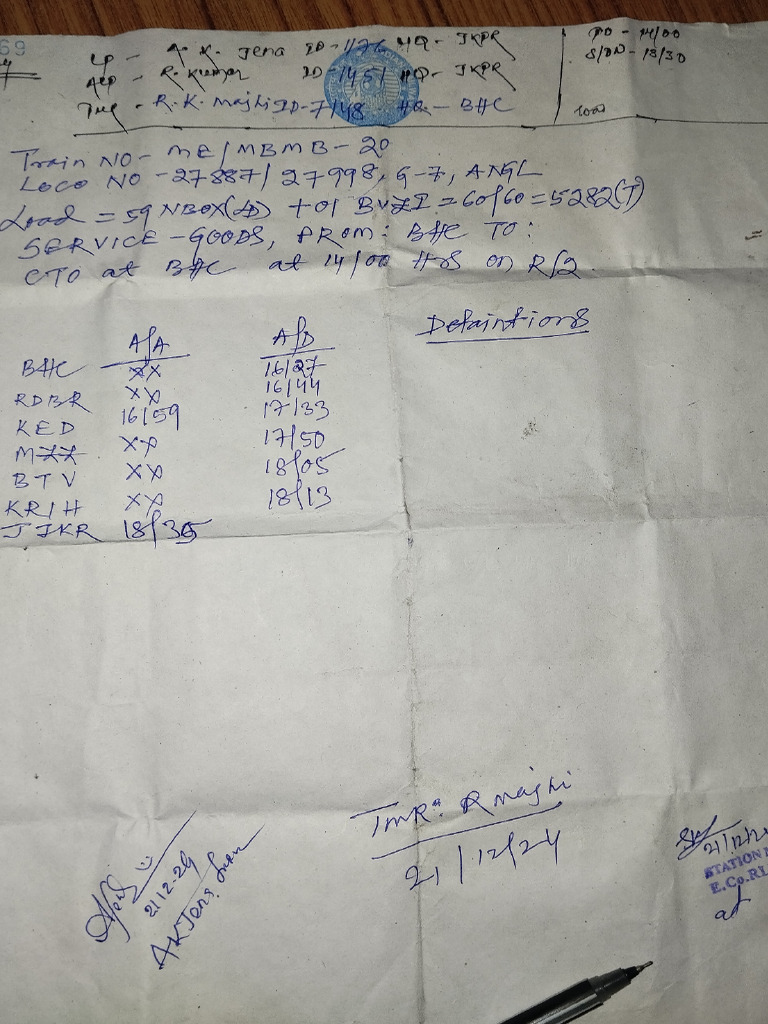 69
LP - A. K. Jena ID-1176 HQ - JKPR
ALP - R. Kumar ID-1451 HQ - JKPR
TMR - R. K. Majhi ID-7148 HQ - BHC
DO - 14/00
S/ON - 13/30
Load
Train NO - ME/MBMB-20
Loco NO - 27887/27998, G-7, ANGL
Load = 59 NBOX(L) + 01 BVZI = 60/60 = 5282(T)
SERVICE - GOODS, FROM: BHC TO:
CTO at BHC at 14/00 Hrs on R/2.
A/A A/D Detaintions
BHC XX 16/27
RDBR XX 16/44
KED 16/59 17/33
MZZ XX 17/50
BTV XX 18/05
KRIH XX 18/13
JJKR 18/35
TMR: R Majhi
21/12/24
21-12-24
A K Jena
21/12/2
STATION
E.Co.Rl
at